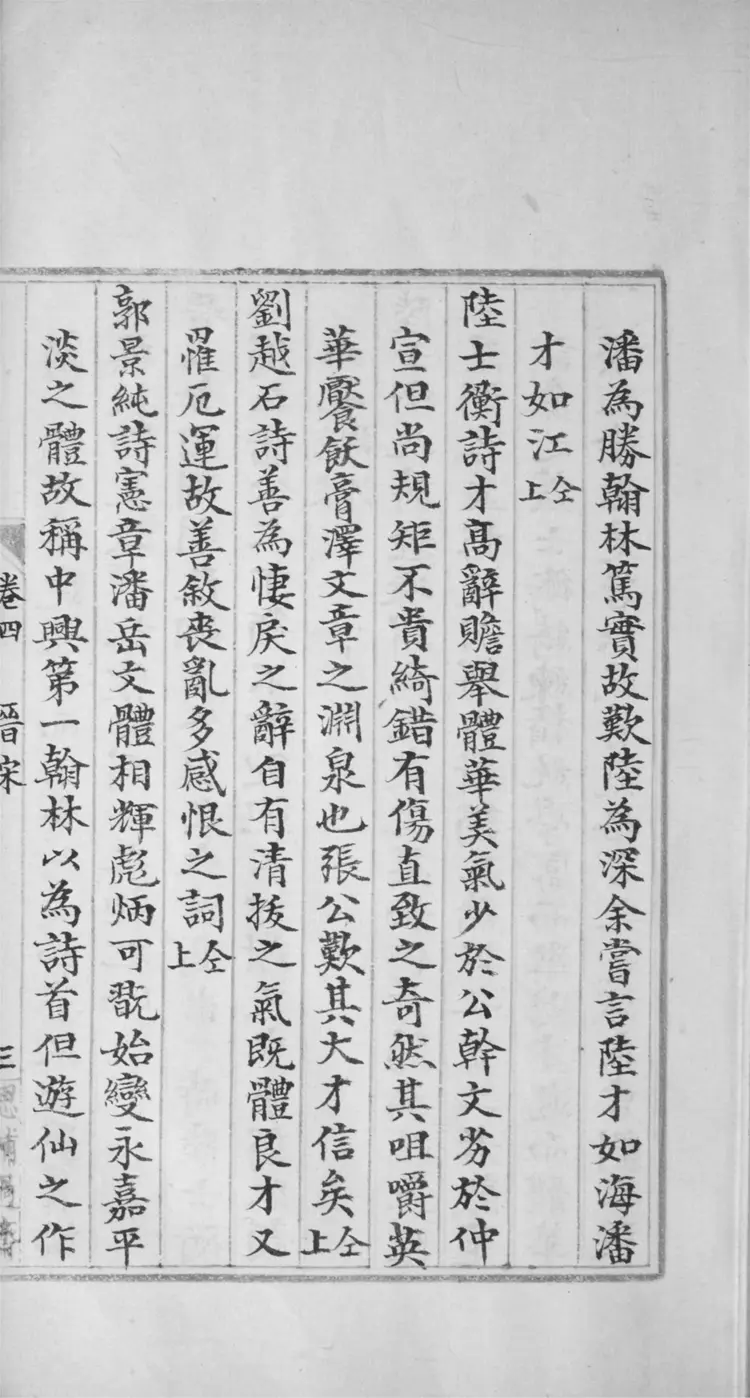 潘為勝翰林篤實故歎陸為深余嘗言陸才如海潘
才如江仝上
陸士衡詩才高辭贍舉體華美氣少於公幹文劣於仲
宣但尚規矩不貴綺錯有傷直致之奇然其咀嚼英
華饜飫膏澤文章之淵泉也張公歎其大才信矣仝上
劉越石詩善為悽戾之辭自有清拔之氣既體良才又
罹厄運故善敘喪亂多感恨之詞仝上
郭景純詩憲章潘岳文體相輝彪炳可翫始變永嘉平
淡之體故稱中興第一翰林以為詩首但遊仙之作
卷四 晉宋 三